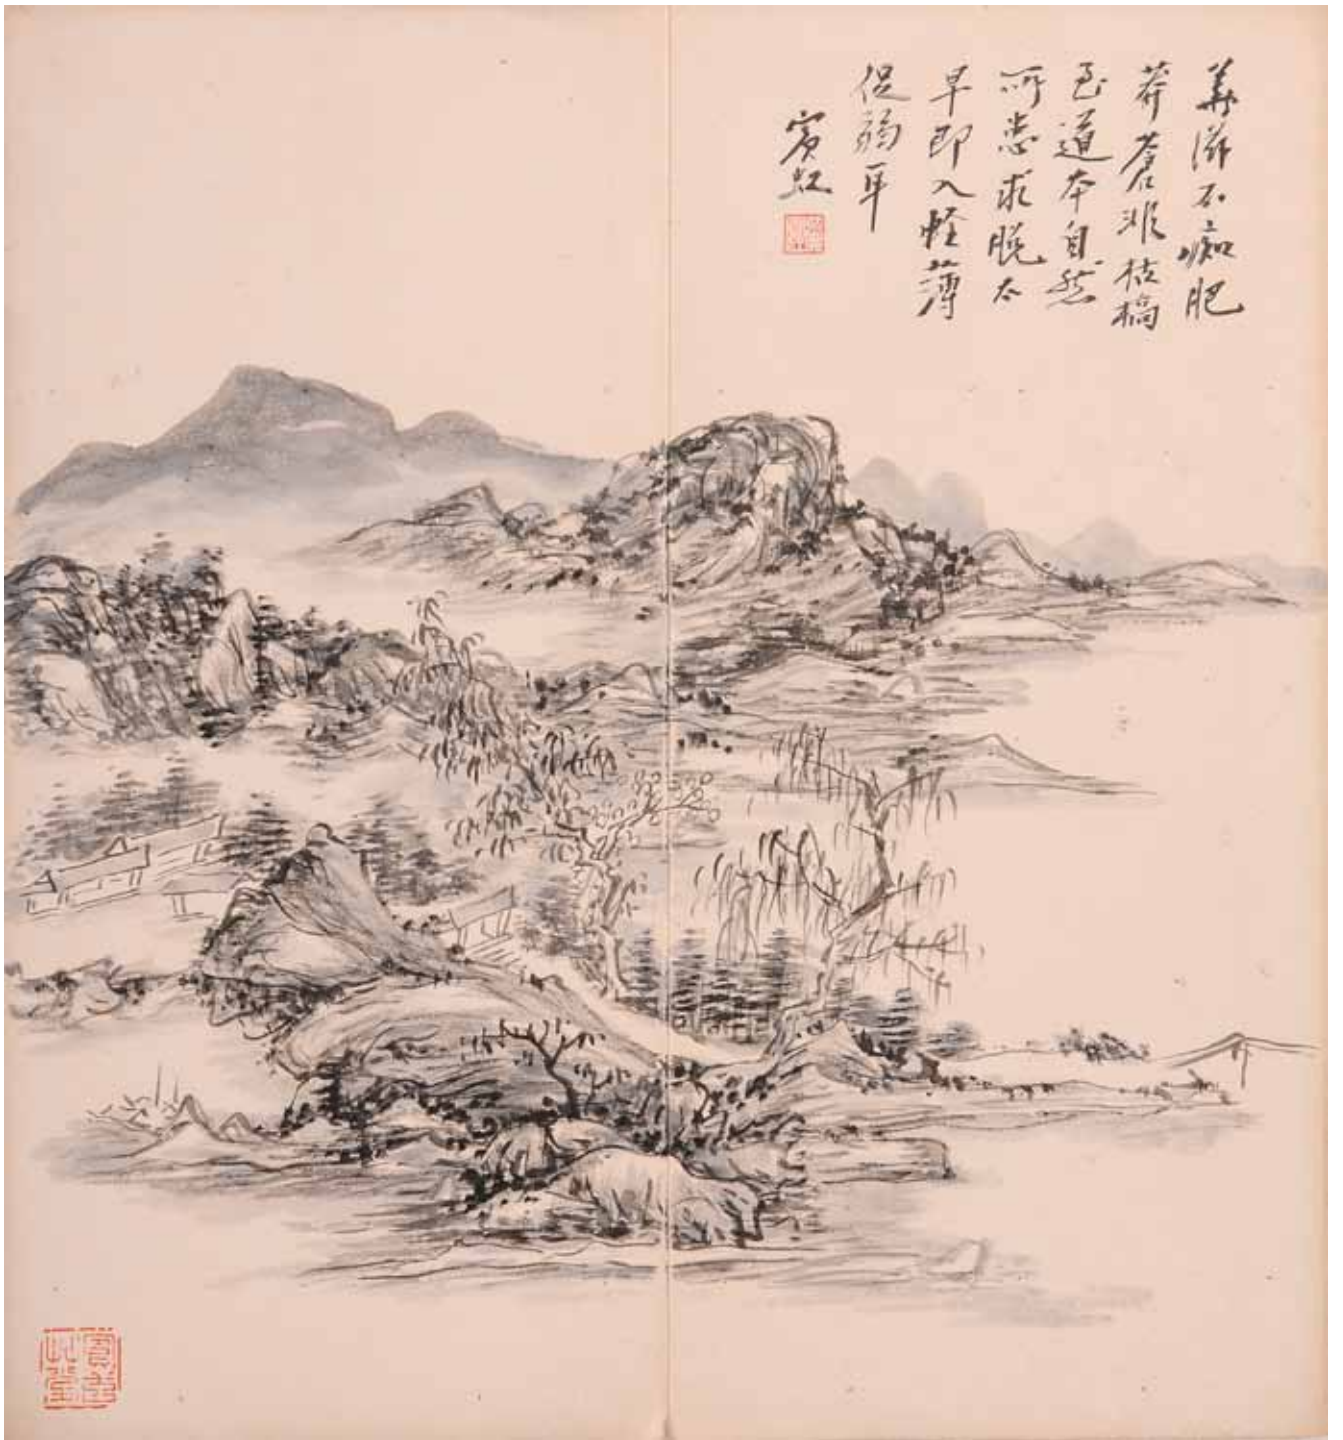 華滋不癡肥
莽蒼非枯槁
至道本自然
所患求脫太
早即入輕薄
促弱耳
賓虹